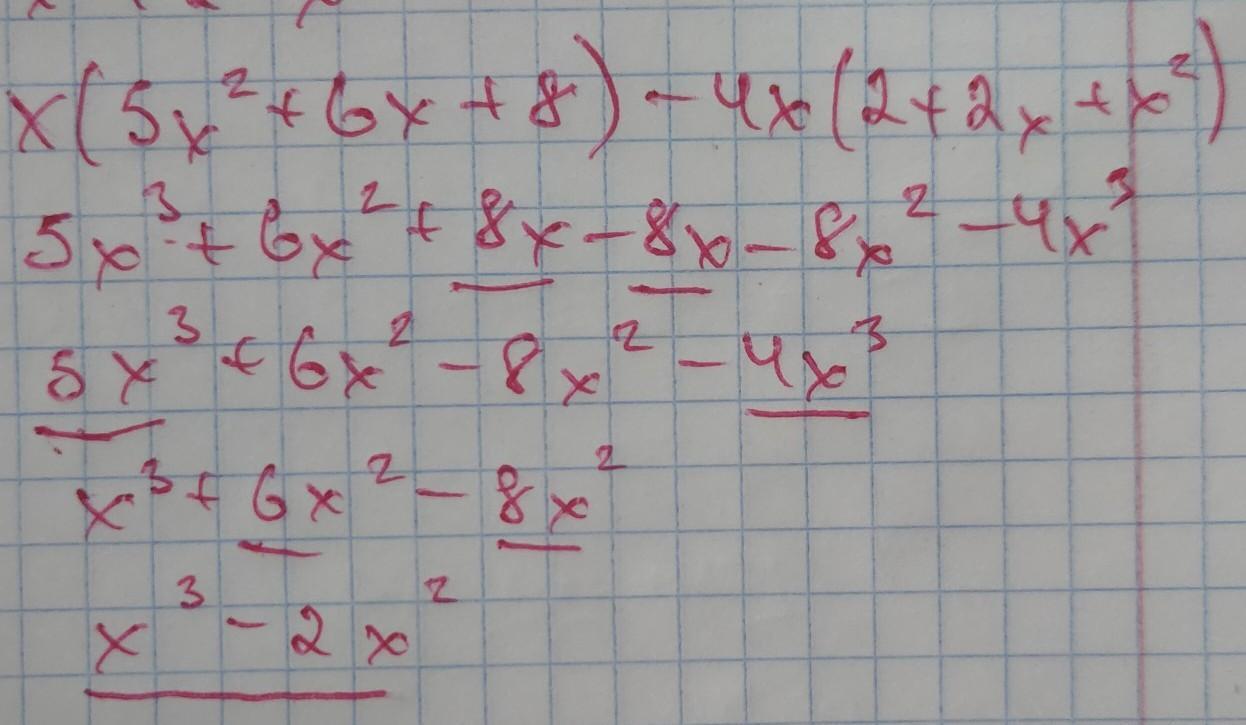 x(5x² + 6x + 8) - 4x(2 + 2x + x²)
5x³ + 6x² + 8x - 8x - 8x² - 4x³
5x³ + 6x² - 8x² - 4x³
x³ + 6x² - 8x²
x³ - 2x²